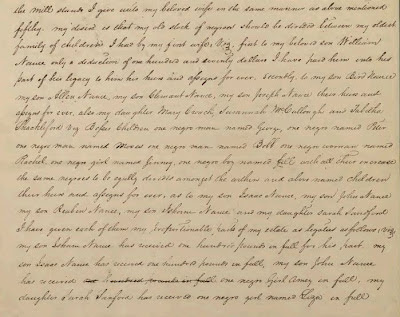 the mill stands I give unto my beloved wife in the same manner as above mentioned
fifthly, my desire is that my old stock of negroes should be divided between my oldest
family of children I had by my first wife, Viz, first to my beloved son William
Nance only a deduction of one hundred and seventy dollars I have paid him into his
part of his legacy to him his heirs and assigns for ever, Secondly, to my son Bird Nance
my son Allen Nance, my son Clement Nance, my son Joseph Nance their heirs and
assigns for ever, also my daughter Mary Crock, Susannah McCullough and Tabitha
Shackleford Viz Boses children one negro man named George, one negro named Peter
one negro man named Moses one negro man named Bobb one negro woman named
Rachel one negro girl named Jenny, one negro boy named with all their increase
the same negroes to be equally divided amongst the authers and above named children
their heirs and assigns for ever, as to my son Isaac Nance, my son John Nance
my son Reuben Nance, my son Isham Nance and my daughter Sarah Sandford
I have given each of them my proportionable parts of my estate as legatees as follows, Viz,
my son Isham Nance has received one hundred pounds in full for his part, my
son Isaac Nance has received one hundred pounds in full, my son John Nance
has received one hundred pounds in full one negro Girl Amey in full, my
daughter Sarah Sanford has received one negro girl named in full